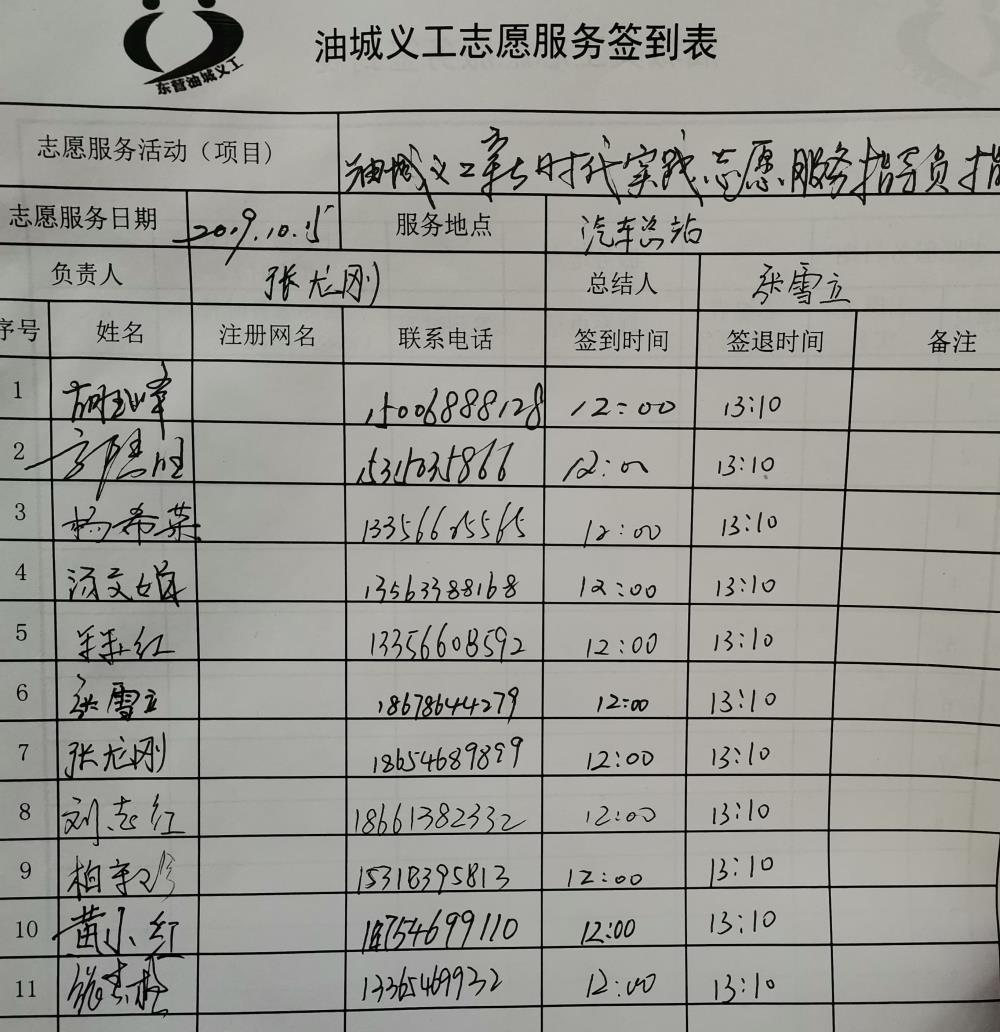 东营油城义工
油城义工志愿服务签到表
志愿服务活动（项目） 油城义工新时代实践志愿服务指导员
志愿服务日期 2019.10.15 服务地点 汽车总站
负责人 张龙刚 总结人 张雪立
序号 姓名 注册网名 联系电话 签到时间 签退时间 备注
1 15006888128 12:00 13:10
2 15315035866 12:00 13:10
3 杨希荣 12:00 13:10
4 汤文娟 13563388168 12:00 13:10
5 13356608592 12:00 13:10
6 张雪立 18678644279 12:00 13:10
7 张龙刚 18654689899 12:00 13:10
8 刘志红 18661382332 12:00 13:10
9 15318395813 12:00 13:10
10 黄小红 14754699110 12:00 13:10
11 13365469932 12:00 13:10